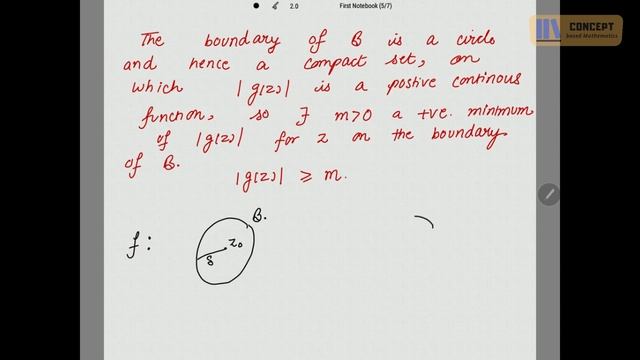 2.0
First Notebook (5/7)
CONCEPT
based Mathematics
The boundary of B is a circle
and hence a compact set, on
which |g(z)| is a postive continous
function, so ∃ m>0 a +ve. minimum
of |g(z)| for z on the boundary
of B.
|g(z)| ≥ m.
B.
f:
z₀
δ